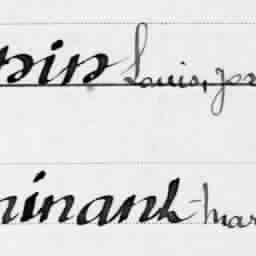 pin Louis, jos
ninant-mar